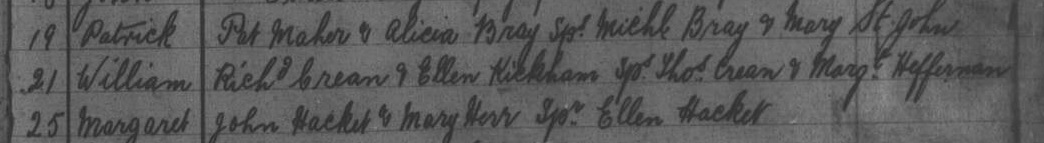 19 Patrick Pat Maher & Alicia Bray Sps. Michl Bray & Mary St. John
21 William Richd Crean & Ellen Kickham Sps. Thos. Crean & Margt. Heffernan
25 Margaret John Hacket & Mary Herr Spr. Ellen Hacket